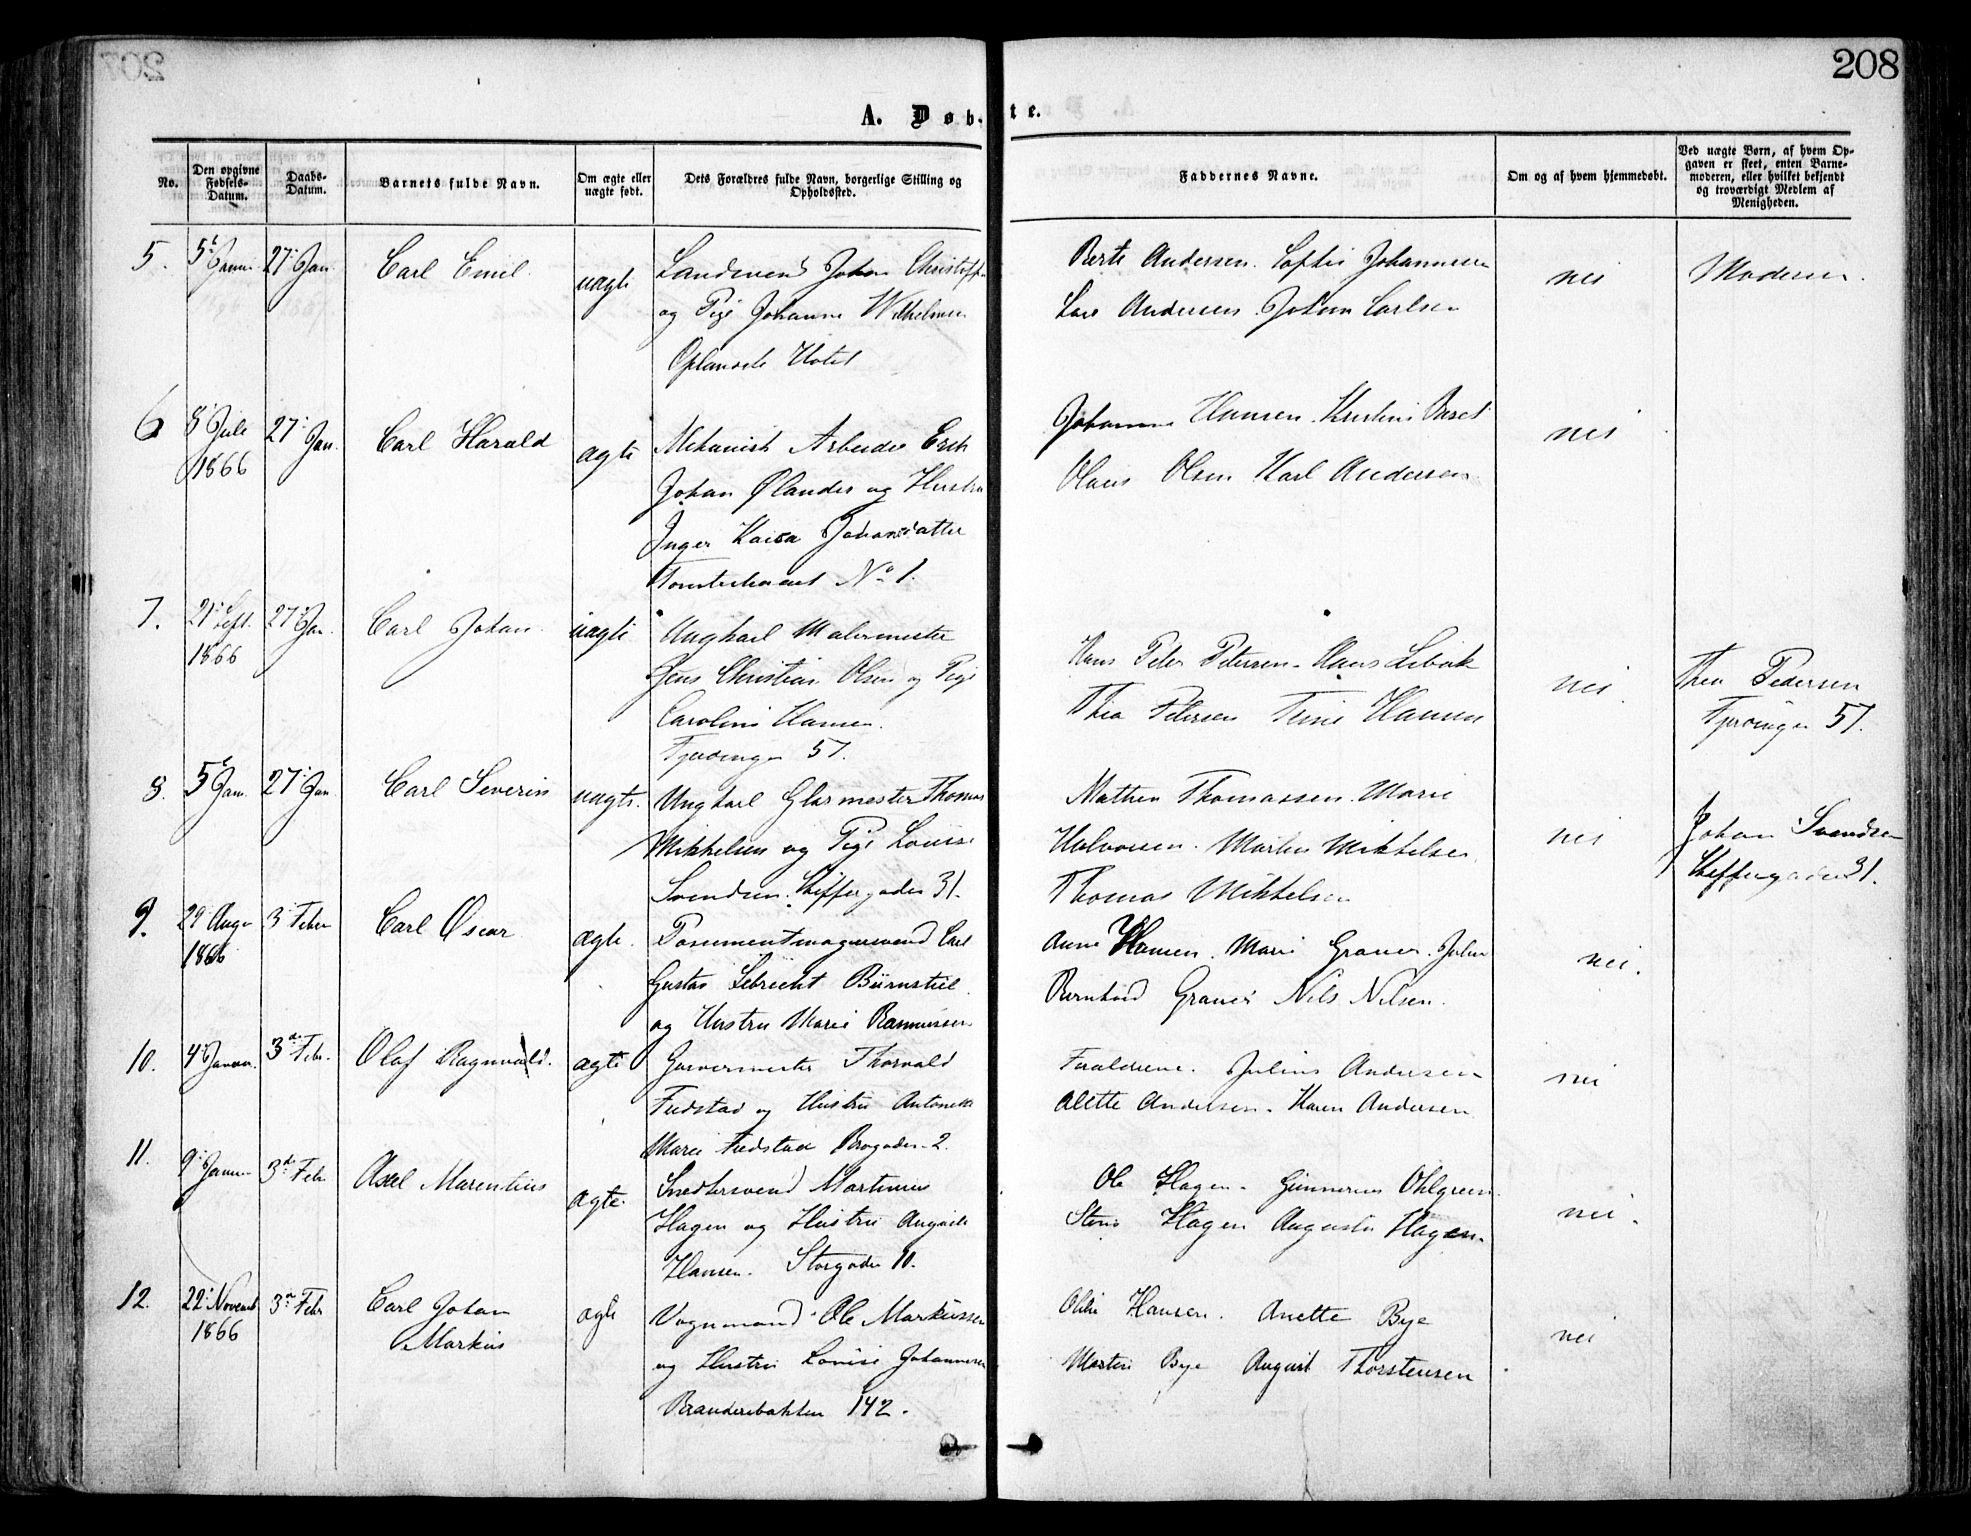 207
208
A. Døbte.
No.
Den opgivne Fødsels-Datum.
Daabs-Datum.
Barnets fulde Navn.
Om ægte eller uægte født.
Dets Forældres fulde Navn, borgerlige Stilling og Opholdssted.
Faddernes Navne.
Om og af hvem hjemmedøbt.
Ved uægte Børn, af hvem Opgaven er skeet, enten Barnemoderen, eller hvilket bekjendt og troværdigt Medlem af Menigheden.
5. 5 Januar 27 Jan. Carl Emil uægte
Johan Christoff
og Pige Johanne Wilhelmsen
Oplandske Hotel
Berte Andersen. Sophie Johannesen
Lars Andersen. Johan Carlsen
nei
Moderen.
6 8 Juli 1866 27 Jan. Carl Harald ægte
Mekanisk Arbeider Erik
Johan Ølander og Hustru
Inger Kaisa Johansdatter
No 1.
Johanne Hansen. Kristine
Olaus Olsen Karl Andersen.
nei
7. 21 Sept. 1866 27 Jan. Carl Johan uægte
Ungkarl Malermester
Jens Christian Olsen og Pige
Caroline Hansen.
Fjerdingen 57.
Hans Peter Petersen. Hans
Thea Petersen Trine Hansen
nei
Thea Pedersen
Fjerdingen 57.
8. 5 Jan. 27 Jan. Carl Severin uægte.
Ungkarl Glarmester Thomas
Mikkelsen og Pige Louise
Svendsen. Skippergaden 31.
Mathea Thomassen. Marie
Halvorsen. Martin Mikkelsen.
Thomas Mikkelsen
nei
Johan Svendsen
Skippergaden 31.
9. 29 Aug. 1866 3 Febr Carl Oscar ægte.
Possementmagersvend Carl
Gustav Lebrecht Bürnstiel
og Hustru Marie Rasmussen
Anne Hansen. Marie Graner. Julius
Bernhard Graner Nils Nilsen.
nei.
10. 4 Januar 3 Febr. Olaf Ragnvald. ægte
Garvermester Thorvald
Fredstad og Hustru Antonette
Marie Fredstad Brogaden 2.
Forældrene. Julius Andersen
Alette Andersen. Karen Andersen
nei
11. 9 Januar 3 Febr Axel Marentius ægte.
Snedkersvend Martinius
Hagen og Hustru Auguste
Hansen. Storgaden 10.
Ole Hagen. Gunnerius Ohlgreen.
Hagen Augusta Hagen.
nei.
12. 22 Novemb 1866 3 Febr Carl Johan Markus ægte
Vognmand Ole Markussen
og Hustru Lovise Johannesen
142.
Hansen. Anette Bye
Martin Bye August Thorstensen
nei